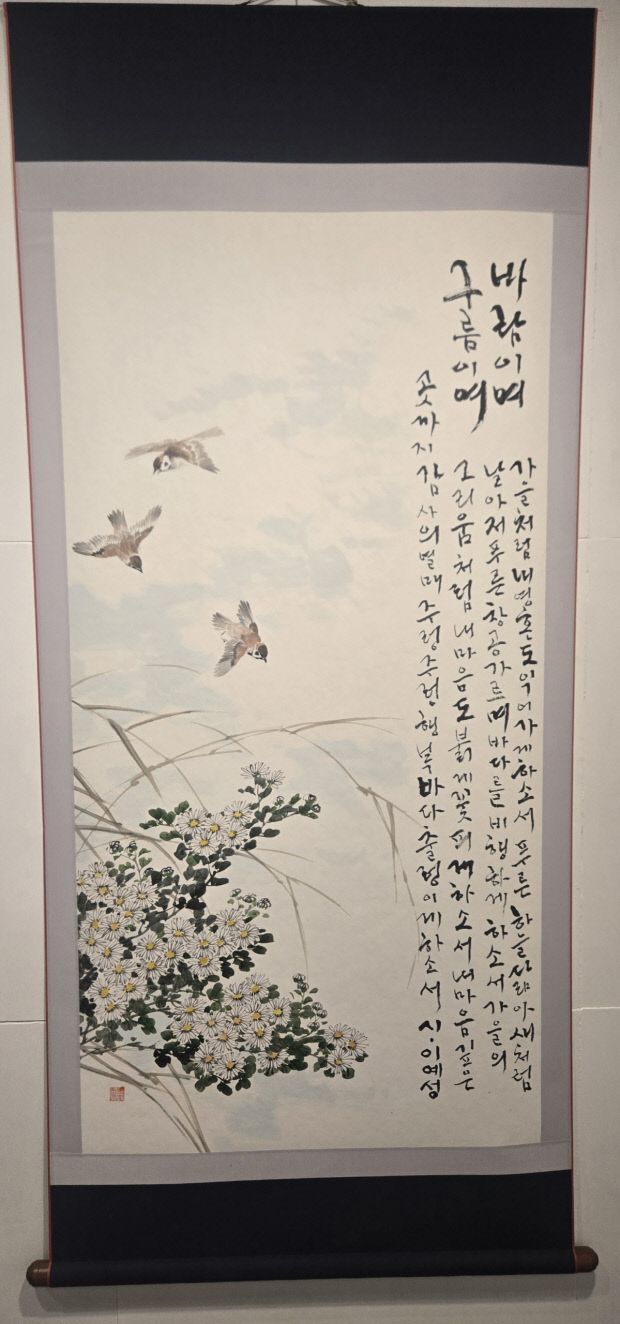 바람이여
구름이여
가을처럼 내 영혼도 익어가게 하소서 푸른 하늘 닮아 새처럼
날아 저 푸른 창공 가르며 바다를 비행하게 하소서 가을의
그리움처럼 내 마음도 붉게 꽃피게 하소서 내 마음 깊은
곳까지 감사의 열매 주렁주렁 행복 바다 출렁이게 하소서 시.이예성